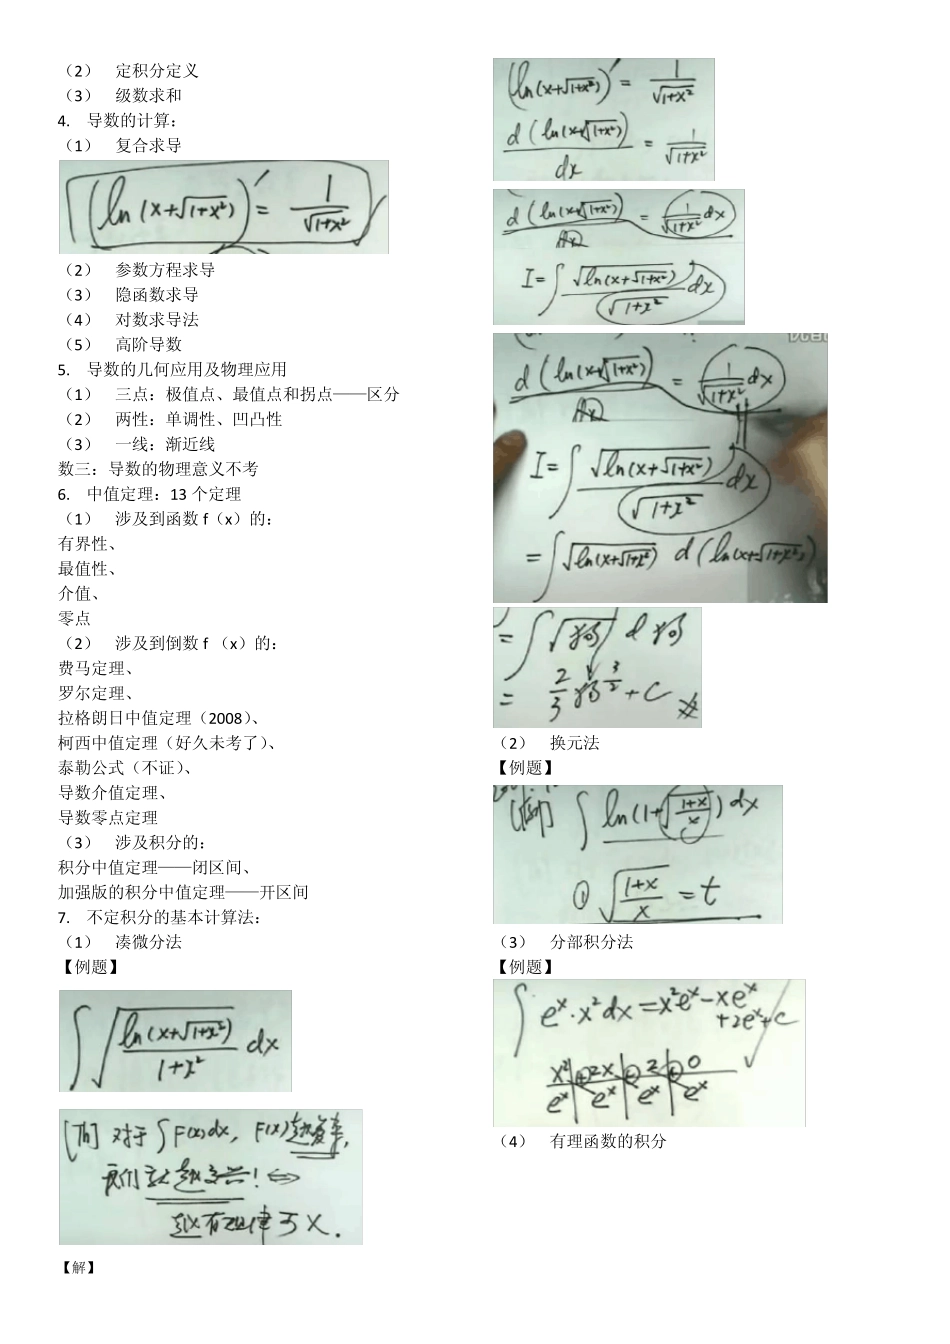 （2） 定积分定义
（3） 级数求和
4. 导数的计算：
（1） 复合求导
(ln(x+√(1+x²)))′ = 1/√(1+x²)
（2） 参数方程求导
（3） 隐函数求导
（4） 对数求导法
（5） 高阶导数
5. 导数的几何应用及物理应用
（1） 三点：极值点、最值点和拐点——区分
（2） 两性：单调性、凹凸性
（3） 一线：渐近线
数三：导数的物理意义不考
6. 中值定理：13 个定理
（1） 涉及到函数 f（x）的：
有界性、
最值性、
介值、
零点
（2） 涉及到倒数 f （x）的：
费马定理、
罗尔定理、
拉格朗日中值定理（2008）、
柯西中值定理（好久未考了）、
泰勒公式（不证）、
导数介值定理、
导数零点定理
（3） 涉及积分的：
积分中值定理——闭区间、
加强版的积分中值定理——开区间
7. 不定积分的基本计算法：
（1） 凑微分法
【例题】
∫√(ln(x+√(1+x²))/(1+x²)) dx
对于∫F(x)dx, F(x)越复杂,
我们越高兴! ⇔
越有规律于X.
【解】
(ln(x+√(1+x²)))′ = 1/√(1+x²)
d(ln(x+√(1+x²)))/dx = 1/√(1+x²)
d(ln(x+√(1+x²))) = 1/√(1+x²) dx
I=∫√ln(x+√(1+x²))/√(1+x²) dx
d(ln(x+√(1+x²))) = 1/√(1+x²) dx
I=∫√ln(x+√(1+x²))/√(1+x²) dx
=∫√ln(x+√(1+x²)) d(ln(x+√(1+x²)))
=∫√狗 d 狗
= 2/3 狗^(3/2) + C
（2） 换元法
【例题】
[例] ∫ln(1+√((1+x)/x))dx
① √((1+x)/x) = t
（3） 分部积分法
【例题】
∫eˣ·x²dx=x²eˣ-xeˣ
+2eˣ+C
x² ⊕ 2x ⊖ 2 ⊕ 0
eˣ eˣ eˣ eˣ
（4） 有理函数的积分